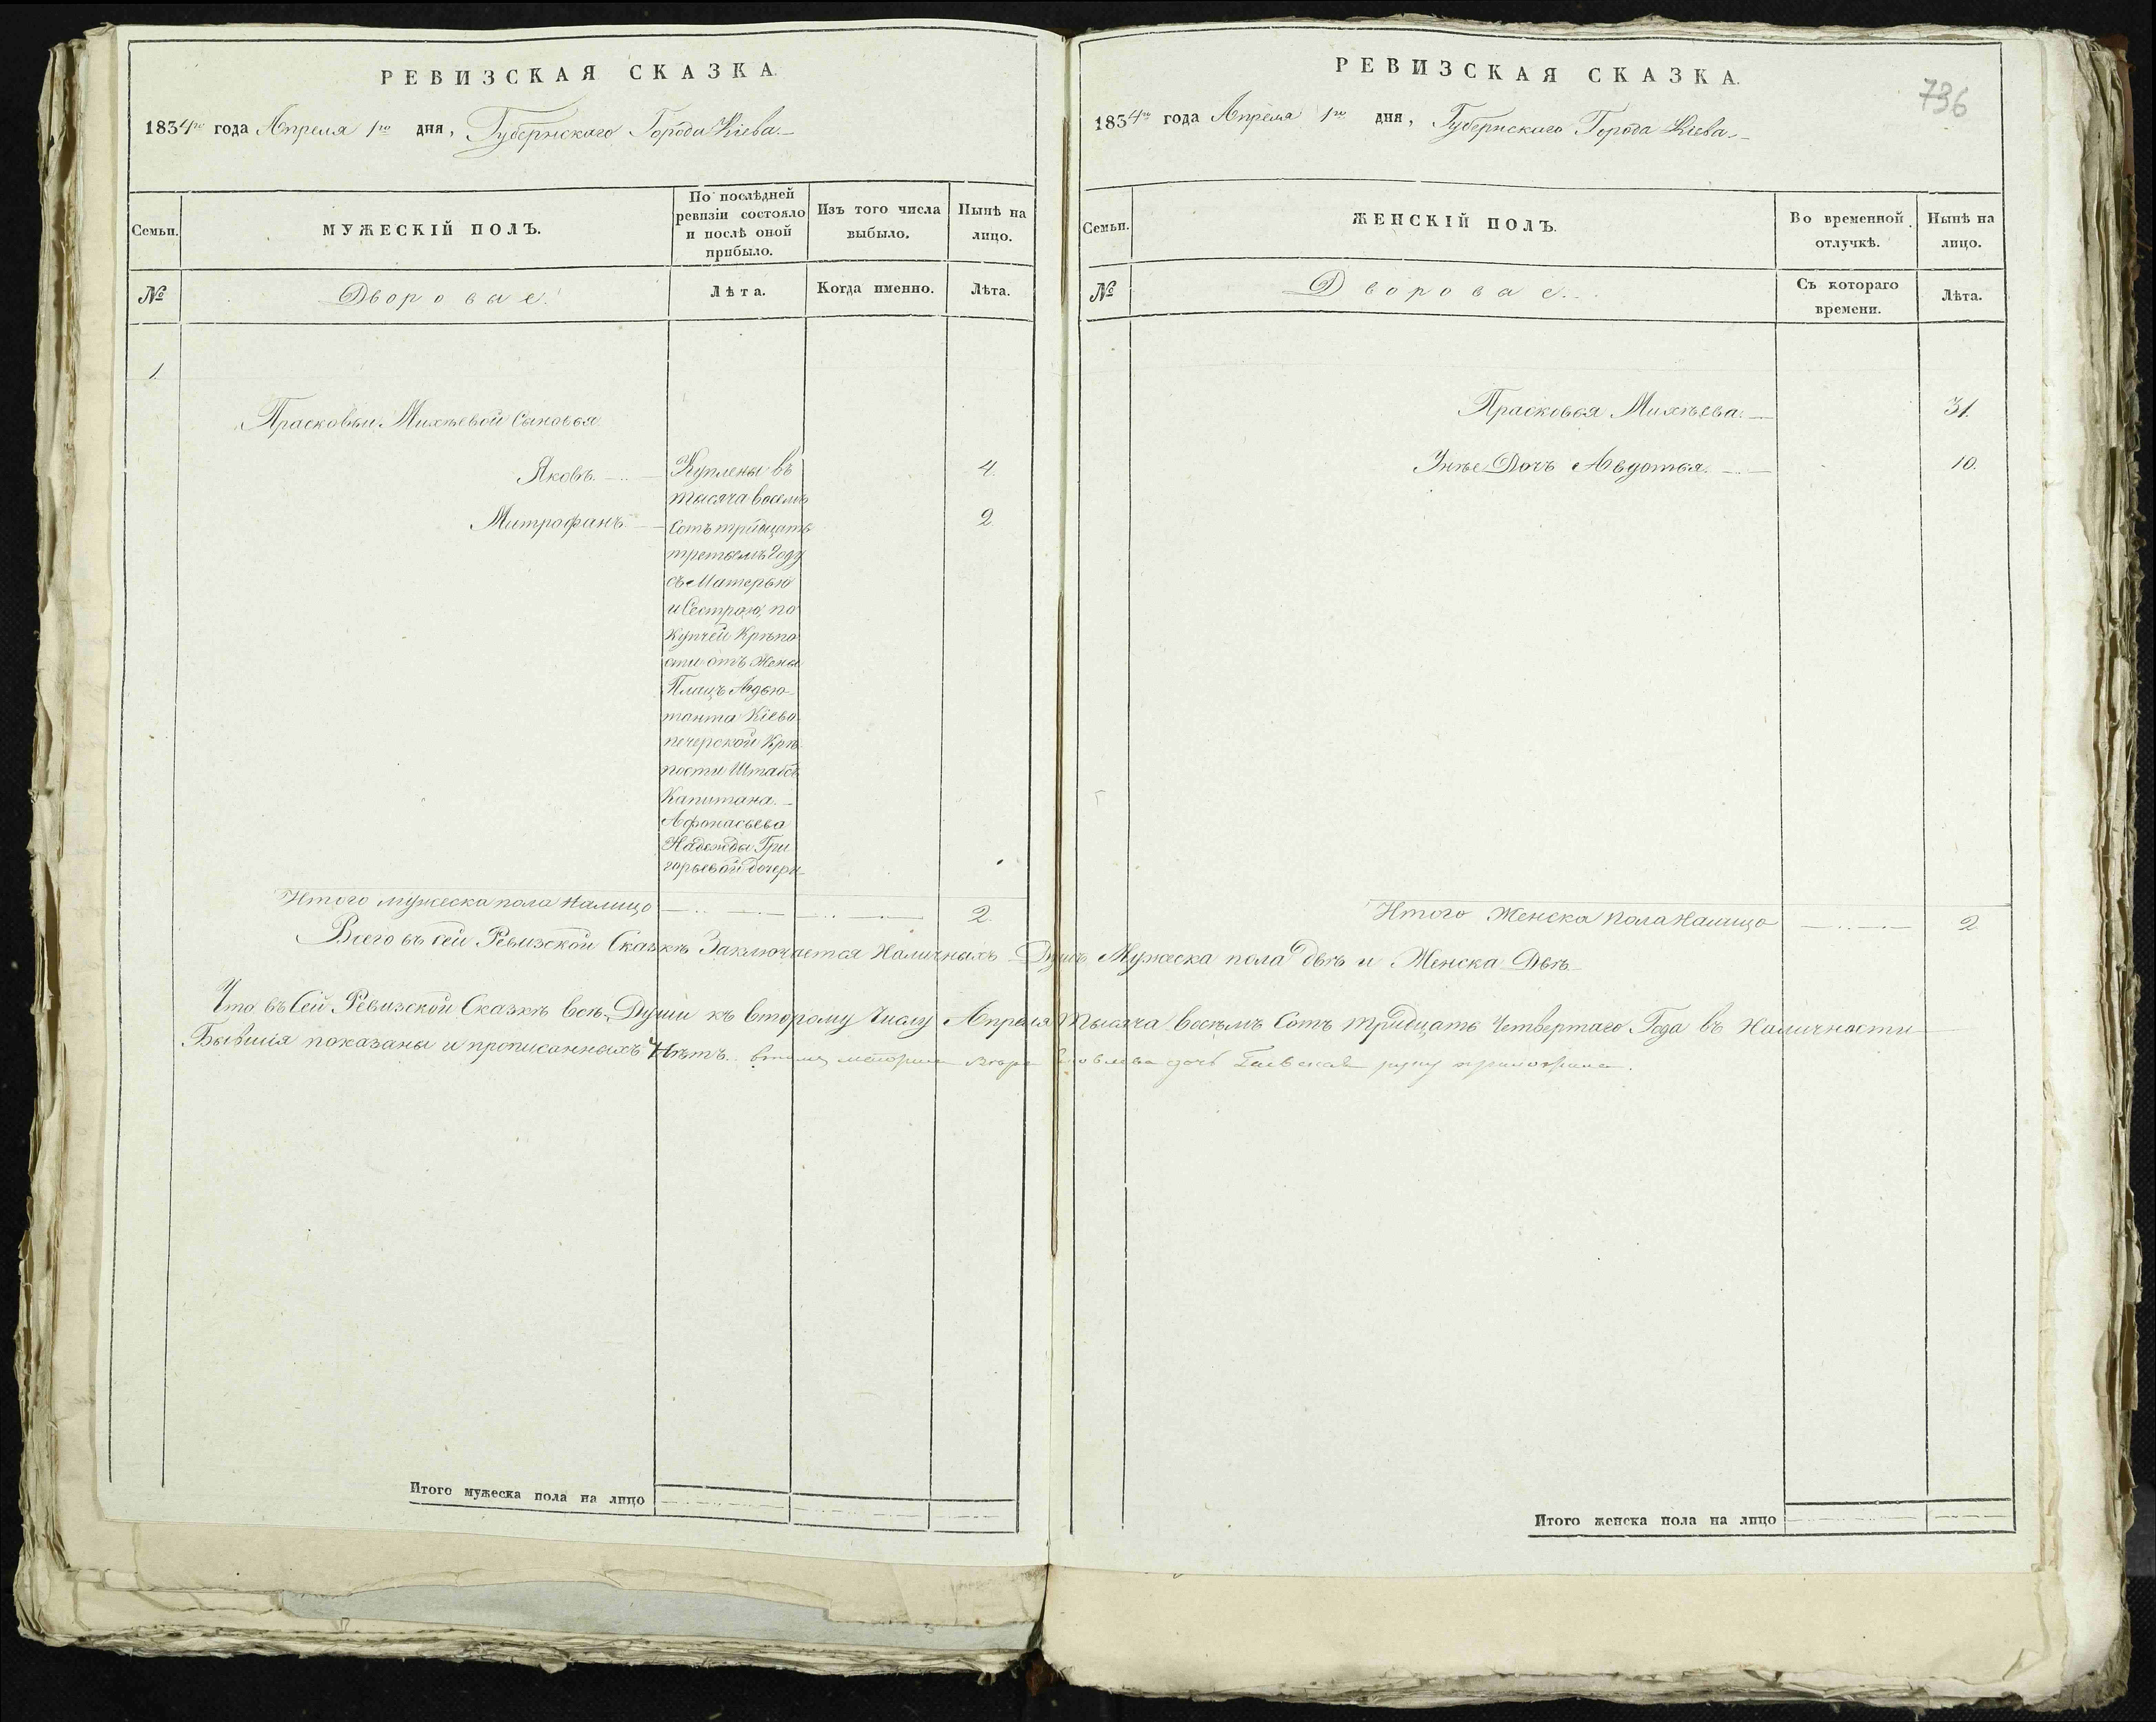 РЕВИЗСКАЯ СКАЗКА.
1834го года Апреля 1го дня, Губернскаго Города Кіева.
Семьи.
МУЖЕСКІЙ ПОЛЪ.
По послѣдней
ревизіи состояло
и послѣ оной
прибыло.
Изъ того числа
выбыло.
Нынѣ на
лицо.
№
Дворовые.
Лѣта.
Когда именно.
Лѣта.
1.
Прасковьи Михѣевой Сыновья
Яковъ.
Куплены въ
4.
тысяча восемь
Митрофанъ
Сотъ тридцать
2
третьемъ Году
съ Матерью
и Сестрою, по
Купчей Крѣпо
сти отъ Жены
Плацъ Адъю-
танта Кіево
печерской Крѣ
пости Штабсъ
Капитана.
Афонасьева
Надежды Гри
горьевой дочери
Итого мужеска пола Налицо
2.
РЕВИЗСКАЯ СКАЗКА.
736
1834го года Апреля 1го дня, Губернскаго Города Кіева.
Семьи.
ЖЕНСКІЙ ПОЛЪ.
Во временной
отлучкѣ.
Нынѣ на
лицо.
№
Дворовые.
Съ котораго
времени.
Лѣта.
Прасковья Михѣева.
31.
Дочь Авдотья.
10.
Итого Женска пола Налицо
2.
Всего въ сей Ревизской Сказкѣ Заключается Наличныхъ Душъ Мужеска пола двѣ и Женска Двѣ
Что въ Сей Ревизской Сказкѣ всѣ Души къ второму Числу Апреля Тысяча восемъ Сотъ тридцать Четвертаго Года въ Наличности
Бывшія показаны и прописанныхъ Нѣтъ. Вѣра дочь руку приложила.
Итого мужеска пола на лицо
Итого женска пола на лицо